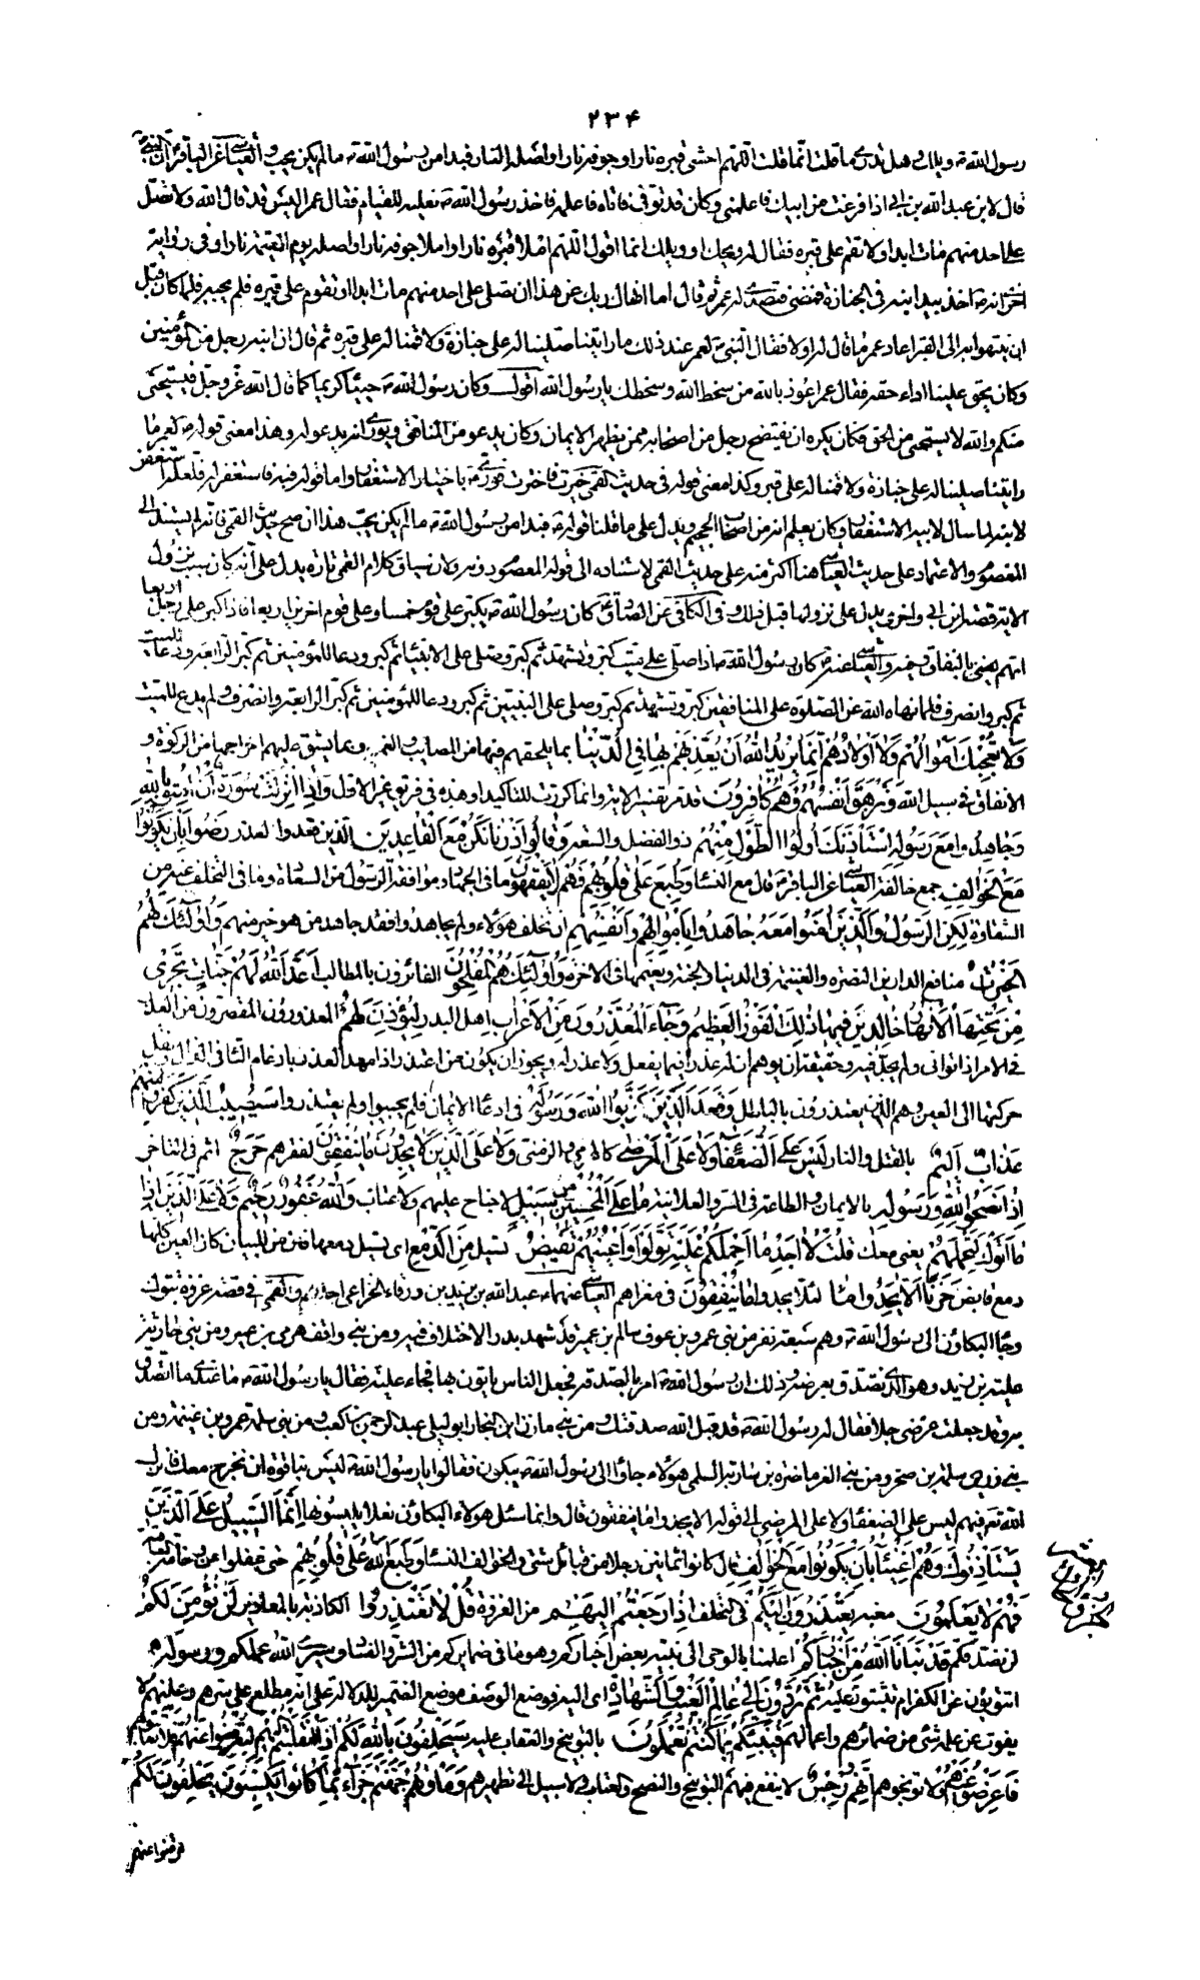 ٢٣۴
رسول الله ص ويلك وهل تدرى ما قلت انما قلت اللهم احش قبره نارا وجوفه نارا واصله النار فبدا من رسول الله ص ما لم يكن يحب والعياشى عن الباقر ان النبى
قال لابن عبد الله بن ابى اذا فرغت من ابيك فاعلمنى وكان قد توفى فاتاه فاعلمه فاخذ رسول الله ص نعليه للقيام فقال عمر اليس قد قال الله ولا تصل
على احد منهم مات ابدا ولا تقم على قبره فقال له ويحك او ويلك انما اقول اللهم املأ قبره نارا واملأ جوفه نارا واصله يوم القيمة نارا وفى رواية
اخرى انه ص اخذ بيد ابنه فى الجنازة فمضى فتصدى له عمر ثم قال اما نهاك ربك عن هذا ان تصلى على احد منهم مات ابدا او تقوم على قبره فلم يجبه فلما كان قبل
ان ينتهوا به الى القبر اعاد عمر ما قال له اولا فقال النبى ص لعمر عند ذلك ما رايتنا صلينا له على جنازة ولا قمنا له على قبره ثم قال ان ابنه رجل من المؤمنين
وكان يحق علينا اداء حقه فقال عمر اعوذ بالله من سخط الله وسخطك يا رسول الله اقول وكان رسول الله ص حييا كريما كما قال الله عز وجل فيستحيى
منكم والله لا يستحيى من الحق فكان يكره ان يفتضح رجل من اصحابه ممن يظهر الايمان وكان يدعو على المنافق ويورى انه يدعو له وهذا معنى قوله ص لعمر ما
رايتنا صلينا له على جنازة ولا قمنا له على قبر وكذا معنى قوله فى حديث القمى خيرت فاخترت فورى ص باختيار الاستغفار واما قوله فيه فاستغفر له فلعله استغفر
لابنه لما سال لابيه الاستغفار وكان يعلم انه من اصحاب الجحيم ويدل على ما قلنا قوله ص فبدا من رسول الله ص ما لم يكن يحب هذا ان صح حديث القمى فانه لم يستند الى
المعصوم والاعتماد على حديث العياشى هنا اكثر منه على حديث القمى لاستناده الى قول المعصوم دونه ولان سياق كلام القمى تارة يدل على انه كان سبب نزول
الاية قصة ابن ابى واخرى يدل على نزولها قبل ذلك وفى الكافى عن الصادق ع كان رسول الله ص يكبر على قوم خمسا وعلى قوم اخرين اربعا فاذا كبر على رجل اربعا
اتهم يعنى بالنفاق وفيه والعياشى عنه ع كان رسول الله ص اذا صلى على ميت كبر وتشهد ثم كبر وصلى على الانبياء ثم كبر ودعا للمؤمنين ثم كبر الرابعة ودعا للميت
ثم كبر وانصرف فلما نهاه الله عن الصلوة على المنافقين كبر وتشهد ثم كبر وصلى على النبيين ثم كبر ودعا للمؤمنين ثم كبر الرابعة وانصرف ولم يدع للميت
وَلَا تُعْجِبْكَ اَمْوَالُهُمْ وَلَا اَوْلَادُهُمْ اِنَّمَا يُرِيدُ اللهُ اَنْ يُعَذِّبَهُمْ بِهَا فِى الدُّنْيَا بما يلحقهم فيها من المصائب والغم وبما يشق عليهم اخراجها من الزكوة و
الانفاق فى سبيل الله وَتَزْهَقَ اَنْفُسُهُمْ وَهُمْ كَافِرُونَ قد مر تفسير الاية وانما كررت للتاكيد او هذه فى فريق غير الاول وَاِذَا اُنْزِلَتْ سُورَةٌ اَنْ اٰمِنُوا بِاللهِ
وَجَاهِدُوا مَعَ رَسُولِهِ اسْتَأْذَنَكَ اُولُوا الطَّوْلِ مِنْهُمْ ذو الفضل والسعة وَقَالُوا ذَرْنَا نَكُنْ مَعَ الْقَاعِدِينَ الذين قعدوا لعذر رَضُوا بِاَنْ يَكُونُوا
مَعَ الْخَوَالِفِ جمع خالفة العياشى عن الباقر ع قال مع النساء وَطُبِعَ عَلٰى قُلُوبِهِمْ فَهُمْ لَا يَفْقَهُونَ ما فى الجهاد وموافقة الرسول من السعادة وما فى التخلف عنه من
الشقاوة لٰكِنِ الرَّسُولُ وَالَّذِينَ اٰمَنُوا مَعَهُ جَاهَدُوا بِاَمْوَالِهِمْ وَاَنْفُسِهِمْ ان تخلف هؤلاء ولم يجاهدوا فقد جاهد من هو خير منهم وَاُولٰئِكَ لَهُمُ
الْخَيْرَاتُ منافع الدارين النصرة والغنيمة فى الدنيا والجنة ونعيمها فى الاخرة وَاُولٰئِكَ هُمُ الْمُفْلِحُونَ الفائزون بالمطالب اَعَدَّ اللهُ لَهُمْ جَنَّاتٍ تَجْرِى
مِنْ تَحْتِهَا الْاَنْهَارُ خَالِدِينَ فِيهَا ذٰلِكَ الْفَوْزُ الْعَظِيمُ وَجَاءَ الْمُعَذِّرُونَ مِنَ الْاَعْرَابِ اهل البدو لِيُؤْذَنَ لَهُمْ المعذرون المقصرون من العذر
فى الامر اذا توانى ولم يجد فيه وحقيقته ان يوهم ان له عذرا فيما يفعل ولا عذر له ويجوز ان يكون من اعتذر اذا مهد العذر بادغام التاء فى الذال ونقل
حركتها الى العين وهم الذين يعتذرون بالباطل وَقَعَدَ الَّذِينَ كَذَبُوا اللهَ وَرَسُولَهُ فى ادعاء الايمان فلم يجيبوا ولم يعتذروا سَيُصِيبُ الَّذِينَ كَفَرُوا مِنْهُمْ
عَذَابٌ اَلِيمٌ بالقتل والنار لَيْسَ عَلَى الضُّعَفَاءِ وَلَا عَلَى الْمَرْضٰى كالهرمى والزمنى وَلَا عَلَى الَّذِينَ لَا يَجِدُونَ مَا يُنْفِقُونَ لفقرهم حَرَجٌ اثم فى التاخر
اِذَا نَصَحُوا لِلهِ وَرَسُولِهِ بالايمان والطاعة فى السر والعلانية مَا عَلَى الْمُحْسِنِينَ مِنْ سَبِيلٍ لا جناح عليهم ولا عتاب وَاللهُ غَفُورٌ رَحِيمٌ وَلَا عَلَى الَّذِينَ اِذَا
مَا اَتَوْكَ لِتَحْمِلَهُمْ يعنى معك قُلْتَ لَا اَجِدُ مَا اَحْمِلُكُمْ عَلَيْهِ تَوَلَّوْا وَاَعْيُنُهُمْ تَفِيضُ تسيل مِنَ الدَّمْعِ اى تسيل دمعها فان من للبيان كان العين كلها
دمع فايض حَزَنًا اَلَّا يَجِدُوا مَا لئلا يجدوا مَا يُنْفِقُونَ فى مغزاهم العياشى عنهما ع عبد الله بن يزيد بن ورقاء الخزاعى احدهم والقمى فى قصة غزوة تبوك
وجاء البكاؤن الى رسول الله ص وهم سبعة نفر من بنى عمرو بن عوف سالم بن عمير قد شهد بدرا لا اختلاف فيه ومن بنى واقف هرمى بن عمير ومن بنى حارثة
علبة بن يزيد وهو الذى تصدق بعرضه وذلك ان رسول الله ص امر بالصدقة فجعل الناس ياتون بها فجاء علبة فقال يا رسول الله ص ما عندى ما اتصدق
به وقد جعلت عرضى حلا فقال له رسول الله ص قد قبل الله صدقتك ومن بنى مازن ابن النجار ابو ليلى عبد الرحمن بن كعب ومن بنى سلمة عمرو بن غنمة ومن
بنى زريق سلمة بن صخر ومن بنى الغر ماضرة بن سارية السلمى هؤلاء جاؤا الى رسول الله ص يبكون فقالوا يا رسول الله ص ليس بنا قوة ان نخرج معك فانزل
الله تعالى فيهم ليس على الضعفاء ولا على المرضى الى قوله الا يجدوا ما ينفقون قال وانما سئل هؤلاء البكاؤن نعلا يلبسونها اِنَّمَا السَّبِيلُ عَلَى الَّذِينَ
يَسْتَأْذِنُونَكَ وَهُمْ اَغْنِيَاءُ رَضُوا بِاَنْ يَكُونُوا مَعَ الْخَوَالِفِ قال كانوا ثمانين رجلا من قبائل شتى والخوالف النساء وَطَبَعَ اللهُ عَلٰى قُلُوبِهِمْ حتى غفلوا عن وخامة العاقبة
فَهُمْ لَا يَعْلَمُونَ مغبته يَعْتَذِرُونَ اِلَيْكُمْ فى التخلف اِذَا رَجَعْتُمْ اِلَيْهِمْ من الغزوة قُلْ لَا تَعْتَذِرُوا الكاذبة بالمعاذير لَنْ نُؤْمِنَ لَكُمْ
لن نصدقكم قَدْ نَبَّاَنَا اللهُ مِنْ اَخْبَارِكُمْ اعلمنا بالوحى الى نبيه بعض اخباركم وهو ما فى ضمايركم من الشر والفساد وَسَيَرَى اللهُ عَمَلَكُمْ وَرَسُولُهُ
اتتوبون عن الكفر ام تثبتون عليه ثُمَّ تُرَدُّونَ اِلٰى عَالِمِ الْغَيْبِ وَالشَّهَادَةِ اى اليه فوضع الوصف موضع الضمير للدلالة على انه مطلع على سرهم وعلنهم لا
يفوت عن علمه شئ من ضمائرهم واعمالهم فَيُنَبِّئُكُمْ بِمَا كُنْتُمْ تَعْمَلُونَ بالتوبيخ والعقاب عليه سَيَحْلِفُونَ بِاللهِ لَكُمْ اِذَا انْقَلَبْتُمْ اِلَيْهِمْ لِتُعْرِضُوا عَنْهُمْ فلا تعاتبوهم
فَاَعْرِضُوا عَنْهُمْ ولا توبخوهم اِنَّهُمْ رِجْسٌ لا ينفع فيهم التوبيخ والنصح والعتاب ولا سبيل الى تطهيرهم وَمَأْوٰيهُمْ جَهَنَّمُ جَزَاءً بِمَا كَانُوا يَكْسِبُونَ يَحْلِفُونَ لَكُمْ
لترضوا عنهم